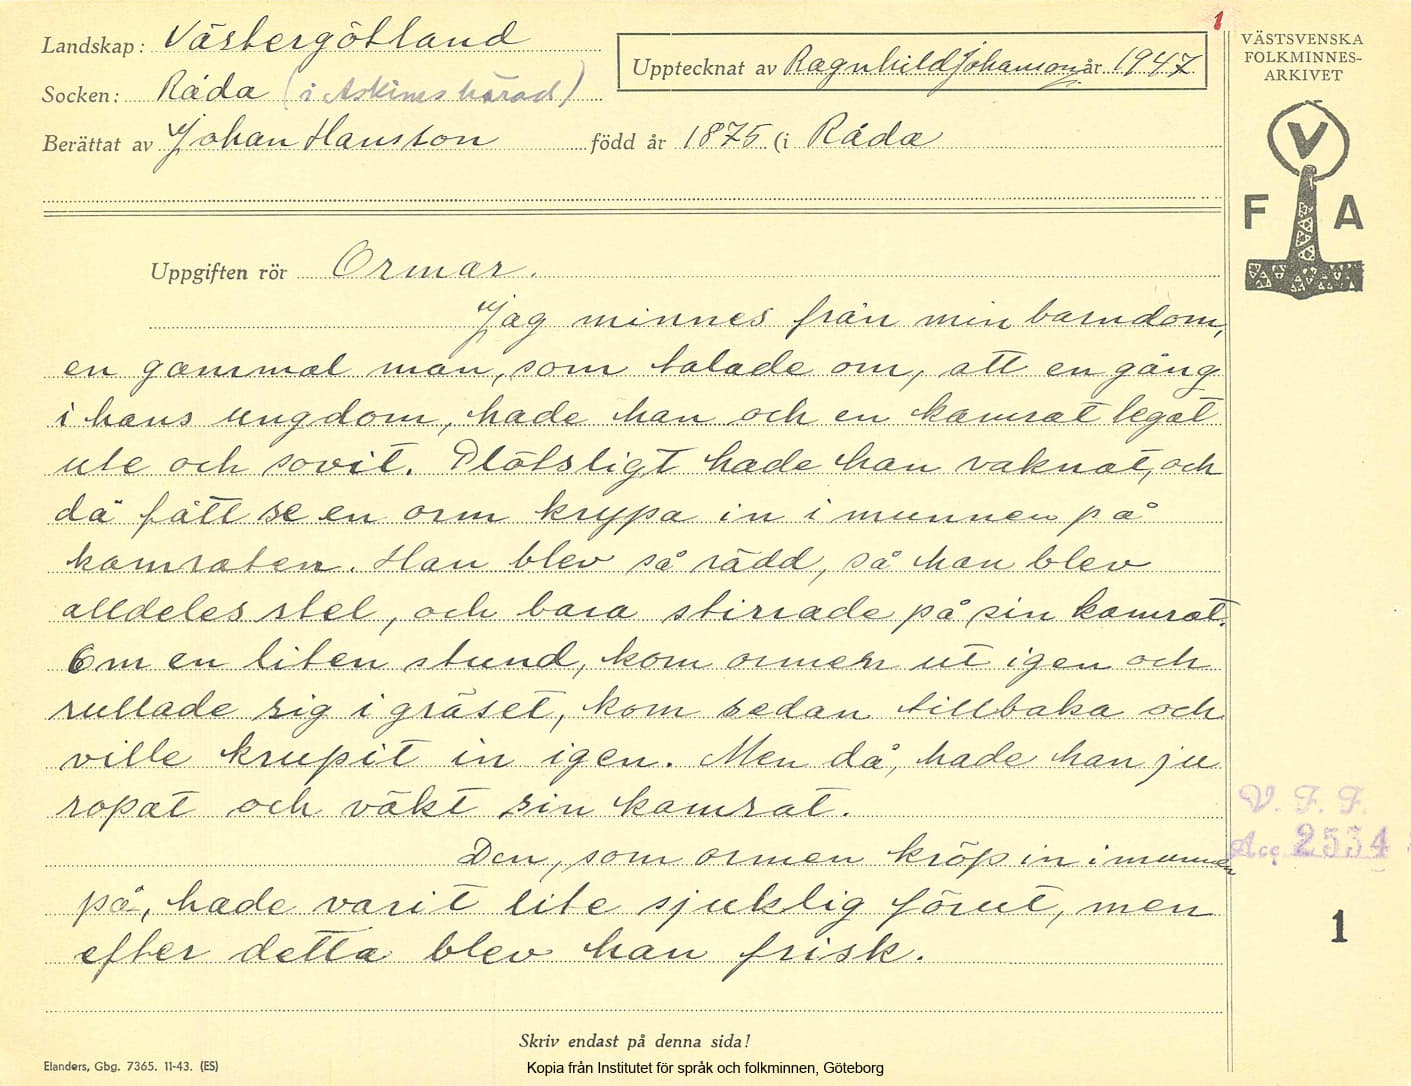 1
Landskap: Västergötland
Socken: Råda (i Askims härad)
Upptecknat av Ragnhild Johanson år 1947
Berättat av Johan Hansson född år 1875 (i Råda
VÄSTSVENSKA
FOLKMINNES-
ARKIVET
V
F A
Uppgiften rör Ormar.
Jag minnes från min barndom,
en gammal man, som talade om, att en gång
i hans ungdom, hade han och en kamrat legat
ute och sovit. Plötsligt hade han vaknat, och
då fått se en orm krypa in i munnen på
kamraten. Han blev så rädd, så han blev
alldeles stel, och bara stirrade på sin kamrat.
Om en liten stund, kom ormen ut igen och
rullade sig i gräset, kom sedan tillbaka och
ville krupit in igen. Men då, hade han ju
ropat och väkt sin kamrat.
Den, som ormen kröp in i munnen
på, hade varit lite sjuklig förut, men
efter detta blev han frisk.
V. F. F.
Acc 2534
1
Skriv endast på denna sida!
Elanders, Gbg. 7365. 11-43. (ES)
Kopia från Institutet för språk och folkminnen, Göteborg